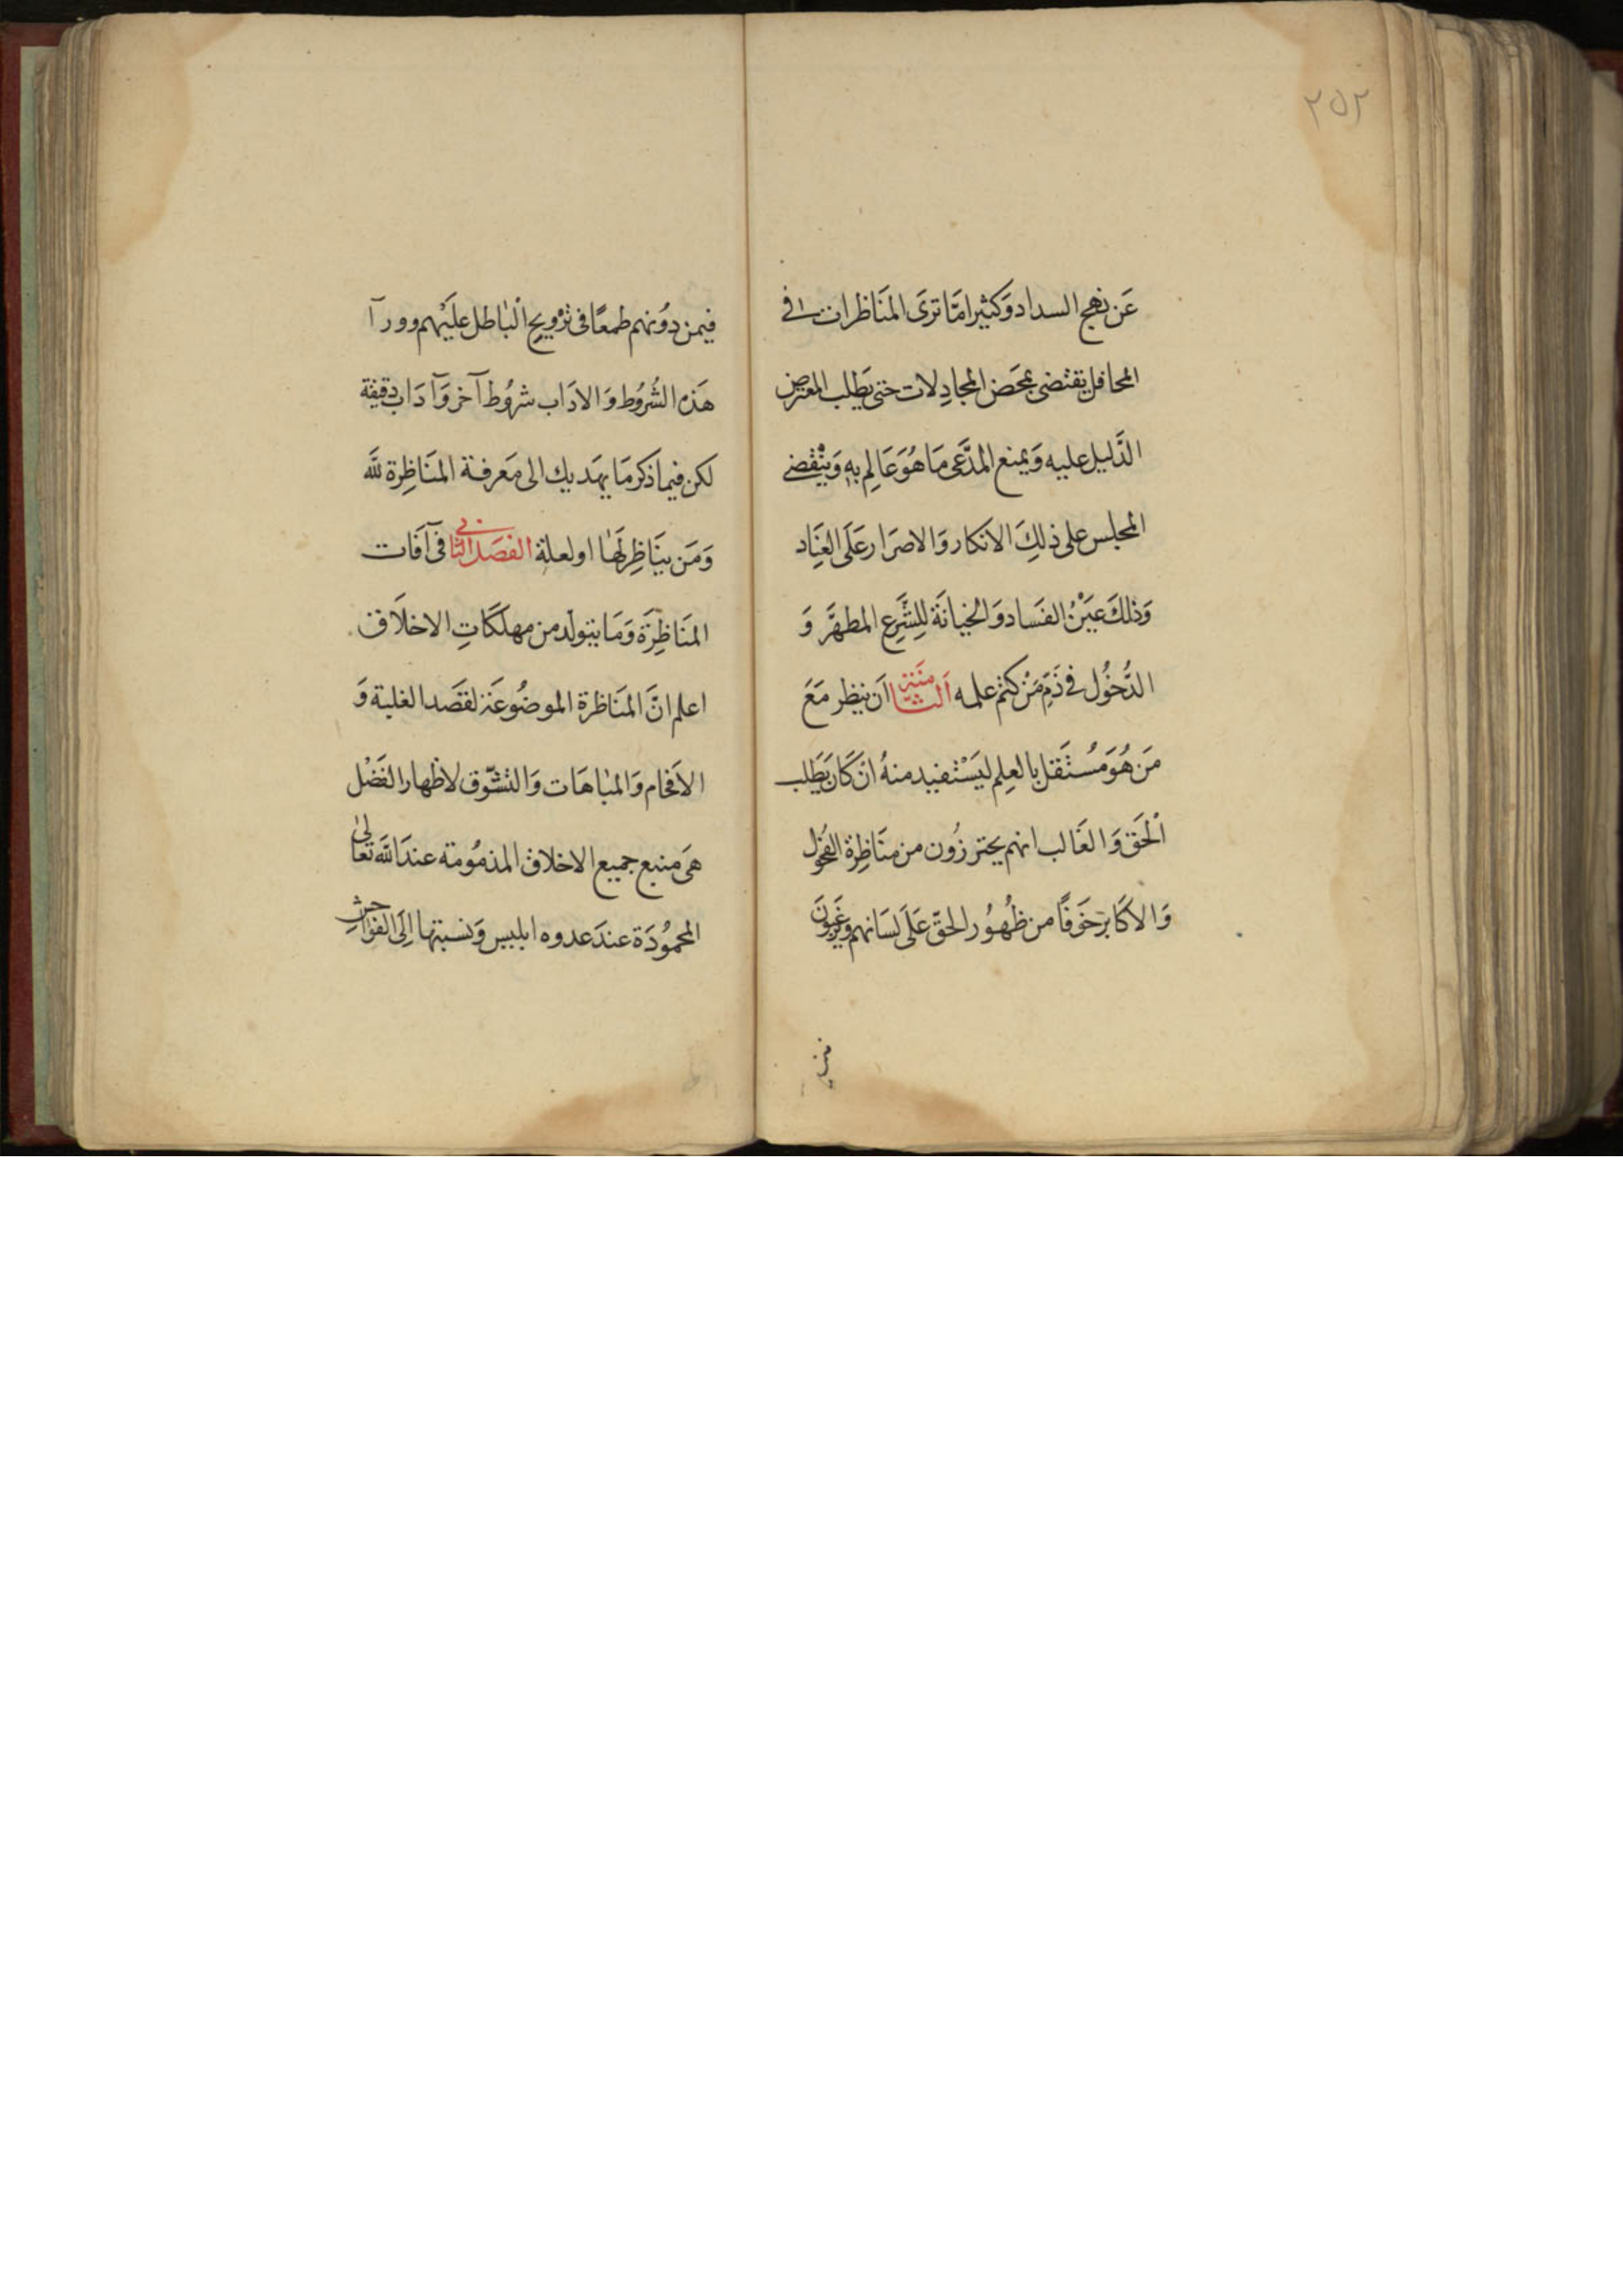 ٢٥٢
عَن نهج السداد وَكثيرا مَّا ترَى المنَاظرات فى
المحافل يقتضى بمحَض المجادِلات حتى يَطلب المعترض
الدَّليل عليه وَيمنع المدَّعى مَا هُوَ عَالِم بهِ وَينْقضى
المجلس على ذلِكَ الانكار وَالاصرَار عَلَى العِنَاد
وَذلكَ عيَنُ الفسَاد وَالخيانَة لِلشَّرِع المطهَّر وَ
الدُّخوُل فى ذَمِّ مَنْ كتم علمه الثامنَة اَن ينظر مَعَ
مَن هُوَ مُستَقل بالعِلم ليَسْتفيد منهُ انْ كَان يَطلب
الْحَق وَالغَالب انهم يحترزُون من منَاظِرة الفحُول
وَالاكَابرَ خَوفًا من ظُهُور الحَقّ عَلَى لسَانهم وَيرغَبُونَ
فيمن دوُنهم طمعًا فى ترْويج الْبَاطل عَليَهم وورآ
هَذه الشُروُط وَالادَاب شروُط آخر وَآدَاب دقيقة
لكن فيما ذكر مَا يهَديك الى مَعرفة المنَاظِرة للّه
وَمَن ينَاظِر لهَا او لعلة الفصَل الثانى فى آفَات
المنَاظِرَة وَمَا يتولّد من مهلكَاتِ الاخلَاق
اعلم انَّ المنَاظرة الموضُوعَة لقصَد الغلبة وَ
الافحَام وَالمبَاهَات وَالتشوّق لاظهار الفَضْل
هىَ منبع جميع الاخلاق المذمُومة عندَ اللّه تعَالىٰ
المحموُدَة عندَ عدوه ابليس وَنسبتها اِلَى الفوَاحِش